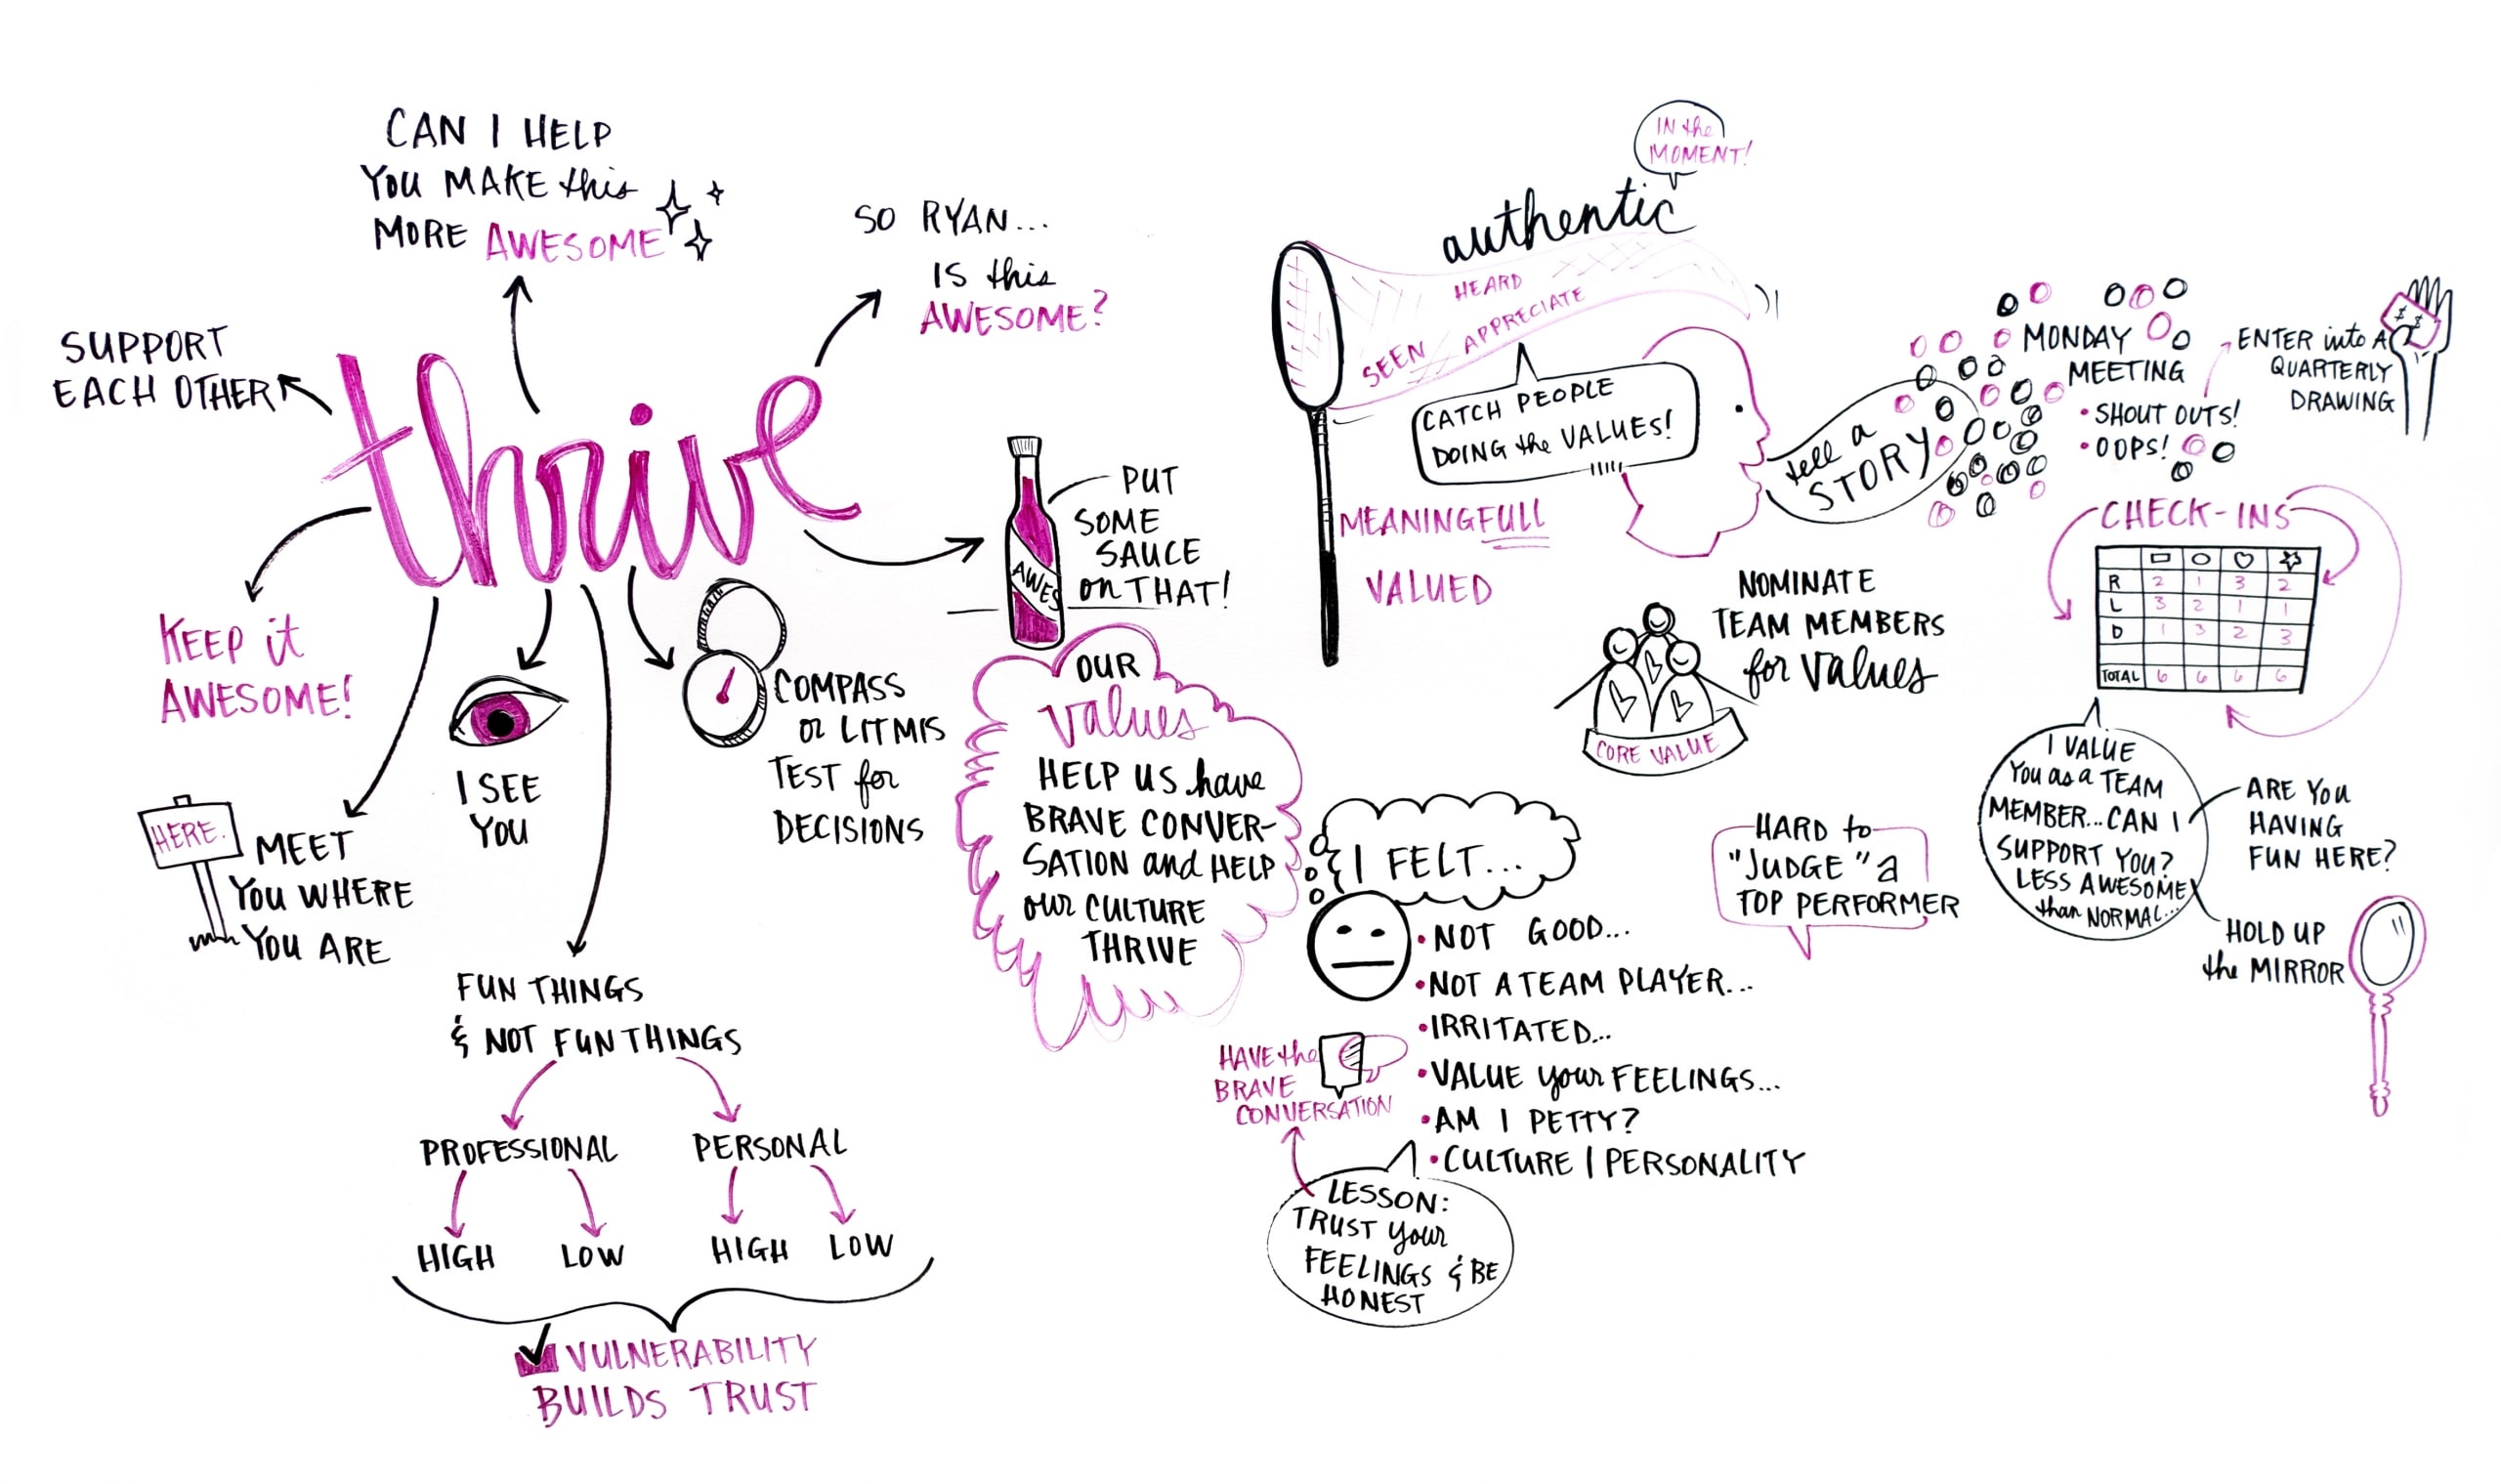 CAN I HELP
YOU MAKE this
MORE AWESOME
SO RYAN...
IS this
AWESOME?
SUPPORT
EACH OTHER
thrive
KEEP it
AWESOME!
HERE.
MEET
YOU WHERE
YOU ARE
I SEE
YOU
COMPASS
or LITMIS
TEST for
DECISIONS
AWES
PUT
SOME
SAUCE
on THAT!
FUN THINGS
& NOT FUN THINGS
PROFESSIONAL
PERSONAL
HIGH
LOW
HIGH
LOW
VULNERABILITY
BUILDS TRUST
OUR
values
HELP US have
BRAVE CONVER-
SATION and HELP
our CULTURE
THRIVE
IN the
MOMENT!
authentic
HEARD
APPRECIATE
SEEN
CATCH PEOPLE
DOING the VALUES!
MEANINGFULL
VALUED
tell a
STORY
MONDAY
MEETING
• SHOUT OUTS!
• OOPS!
ENTER into A
QUARTERLY
DRAWING
$ $
NOMINATE
TEAM MEMBERS
for values
CORE VALUE
CHECK-INS
R 2 1 3 2
L 3 2 1 1
D 1 3 2 3
TOTAL 6 6 6 6
I VALUE
You as a TEAM
MEMBER...CAN I
SUPPORT YOU?
LESS AWESOME
than NORMAL...
ARE YOU
HAVING
FUN HERE?
HOLD UP
the MIRROR
HARD to
"JUDGE" a
TOP PERFORMER
I FELT...
• NOT GOOD...
• NOT A TEAM PLAYER...
• IRRITATED...
• VALUE your FEELINGS...
• AM I PETTY?
• CULTURE | PERSONALITY
HAVE the
BRAVE
CONVERSATION
LESSON:
TRUST your
FEELINGS & BE
HONEST